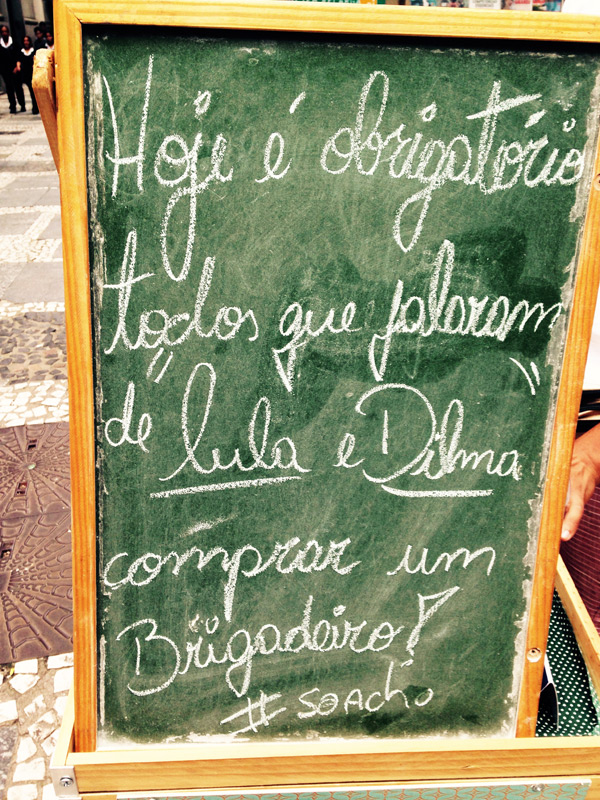 Hoje é obrigatório
todos que falaram
de "lula e Dilma"
comprar um
Brigadeiro!
#SOACHO